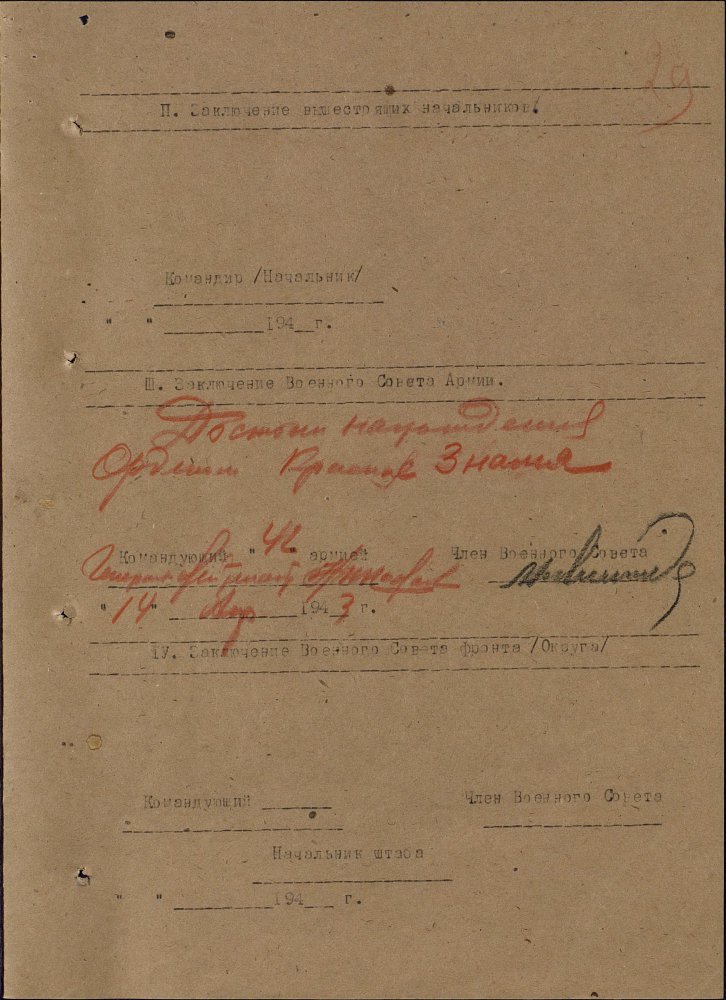 29
П. Заключение вышестоящих начальников/
Командир /Начальник/
" " 194 г.
Ш. Заключение Военного Совета Армии.
Достоин награждения
Орденом Красное Знамя
Командующий "42" армией Член Военного Совета
Генерал-лейтенант
"14" Апр 1943 г.
IУ. Заключение Военного Совета фронта /Округа/
Командующий Член Военного Совета
Начальник штаба
" " 194 г.